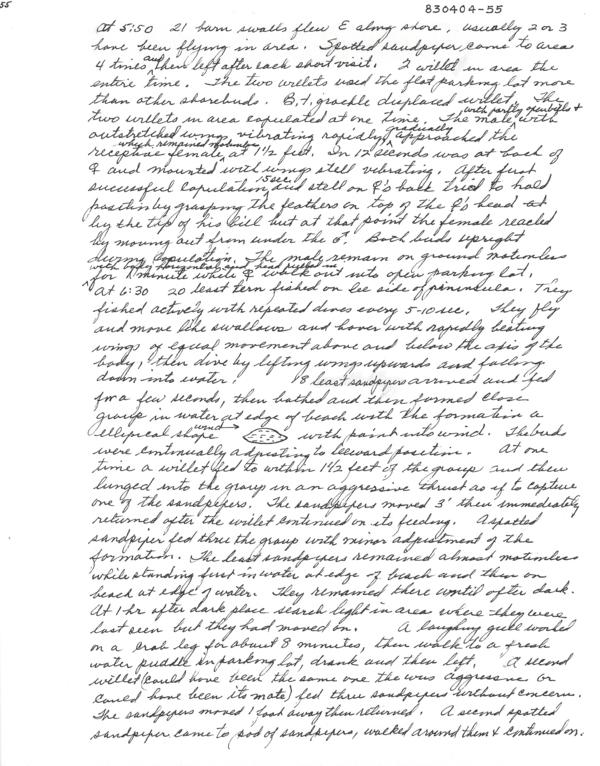 55
830404-55
At 5:50 21 barn swalls flew E along shore, usually 2 or 3
have been flying in area. Spotted sandpiper came to area
4 times and then left after each short visit. 2 willet in area the
entire time. The two willets used the flat parking lot more
than other shorebirds. B.t. grackle displaced willet. The
two willets in area copulated at one time. The male with partly open bill & with
outstretched wings vibrating rapidly gradually approached the
receptive female, which remained motionless, at 1 1/2 feet. In 12 seconds was at back of
♀ and mounted with wings still vibrating. After first
successful copulation, 15 sec, and still on ♀'s back tried to hold
position by grasping the feathers on top of the ♀'s head at
by the tip of his bill but at that point the female reached
by moving out from under the ♂. Both birds upright
during copulation. The male remain on ground motionless
with body horizontal and head pulled in
for 1 minute while ♀ walk out into open parking lot.
At 6:30 20 least tern fished on lee side of peninsula. They
fished actively with repeated dives every 5-10 sec. They fly
and move like swallows and hover with rapidly beating
wings of equal movement above and below the axis of the
body, then dive by lifting wings upwards and falling
down into water. 18 least sandpipers arrived and fed
for a few seconds, then bathed and then formed close
group in water at edge of beach with the formation a
elliptical shape wind → with point into wind. The birds
were continually adjusting to leeward position. At one
time a willet fed to within 1 1/2 feet of the group and then
lunged into the group in an aggressive thrust as if to capture
one of the sandpipers. The sandpipers moved 3' then immediately
returned after the willet continued on its feeding. A spotted
sandpiper fed thru the group with minor adjustment of the
formation. The least sandpipers remained almost motionless
while standing first in water at edge of beach and then on
beach at edge of water. They remained there until after dark.
At 1 hr after dark place search light in area where they were
last seen but they had moved on. A laughing gull worked
on a crab leg for about 8 minutes, then walk to a fresh
water puddle in parking lot, drank and then left. A second
willet (could have been the same one the was aggressive or
could have been its mate) fed thru sandpipers without concern.
The sandpipers moved 1 foot away then returned. A second spotted
sandpiper came to pod of sandpipers, walked around them & continued on.